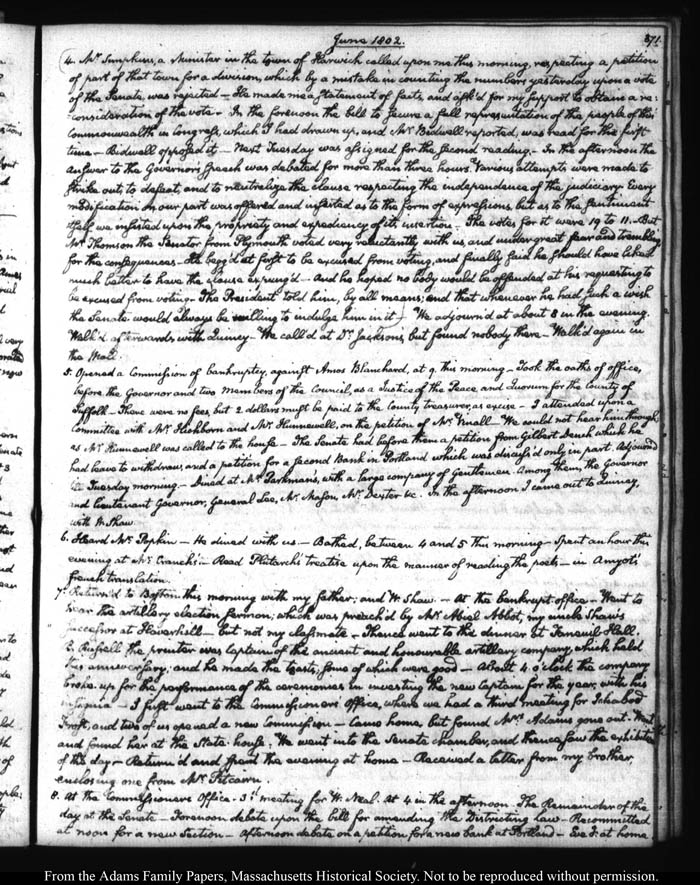 June 1802.
371.
4. Mr. Simpkins, a Minister in the town of Harwich called upon me this morning, respecting a petition
of part of that town for a division, which by a mistake in counting the numbers yesterday upon a vote
of the Senate, was rejected — He made me a statement of facts, and ask'd for my support to obtain a re-
consideration of the vote — In the forenoon the bill to secure a full representation of the people of this
Commonwealth in Congress, which I had drawn up, and Mr. Bidwell reported, was read for the first
time — Bidwell opposed it — Next Tuesday was assigned for the second reading — In the afternoon the
answer to the Governor's speech was debated for more than three hours. Various attempts were made to
strike out, to defeat, and to neutralize the clause respecting the independence of the judiciary. Every
modification on our part was offered and insisted as to the form of expressions, but as to the sentiment
itself we insisted upon the propriety and expediency of its insertion. The votes for it were 19 to 11. But
Mr. Thomson the Senator from Plymouth voted very reluctantly with us, and under great fear and trembling
for the consequences. He begg'd at first to be excused from voting, and finally said he should have liked
much better to have the clause expung'd — And he hoped no body would be offended at his requesting to
be excused from voting — The President told him, by all means; and that whenever he had such a wish
the Senate would always be willing to indulge him in it — We adjourn'd at about 8 in the evening.
Walk'd afterwards with Quincy — We call'd at Dr. Jackson's, but found nobody there — Walk'd again in
the Mall.
5. Opened a Commission of bankruptcy, against Amos Blanchard, at 9. this morning — Took the oaths of office,
before the Governor and two members of the Council, as a Justice of the Peace, and Quorum for the County of
Suffolk — There were no fees, but 2 dollars must be paid to the County treasurer, as excise — I attended upon a
Committee with Mr. Hichborn and Mr. Hunnewell, on the petition of Mr. — We could not hear him through,
as Mr. Hunnewell was called to the house — The Senate had before them a petition from Gilbert Dench which he
had leave to withdraw, and a petition for a second Bank in Portland which was discuss'd only in part. Adjourn'd
to Tuesday morning — Dined at Mr. Parkman's, with a large company of Gentlemen. Among them, the Governor
and lieutenant Governor, General Lee, Mr. Mason, Mr. Dexter &c. In the afternoon I came out to Quincy,
with W. Shaw
6. Heard Mr. Popkin — He dined with us — Bathed, between 4 and 5 this morning — Spent an hour this
evening at Mr. Cranch's — Read Plutarch's treatise upon the manner of reading the poets — in Amyot's
french translation.
7. Return'd to Boston this morning with my father; and W. Shaw. — At the bankrupt office — Went to
hear the artillery election sermon; which was preach'd by Mr. Abiel Abbot, my uncle Shaw's
successor at Haverhill — but not my classmate — Thence went to the dinner at Faneuil-Hall.
B. Russell the printer was captain of the ancient and honourable artillery company, which held
this anniversary; and he made the toasts, some of which were good — About 4 o'clock the company
broke up for the performance of the ceremonies in investing the new Captain for the year, with his
insignia — I first went to the Commissioners office, where we had a third meeting for Ichabod
Frost, and two of us opened a new Commission — Came home, but found Mrs. Adams gone out. Went
and found her at the State-house. We went into the Senate chamber, and thence saw the exhibition
of the day — Return'd and spent the evening at home — Received a letter from my brother,
enclosing one from Mr. Pitcairn.
8. At the Commissioners Office — 3d. meeting for W. Neal. At 4 in the afternoon. The Remainder of the
day at the Senate — Forenoon debate upon the bill for amending the Districting Law — Recommitted
at noon for a new section — Afternoon debate on a petition for a new bank at Portland — Eve. at home
From the Adams Family Papers, Massachusetts Historical Society. Not to be reproduced without permission.